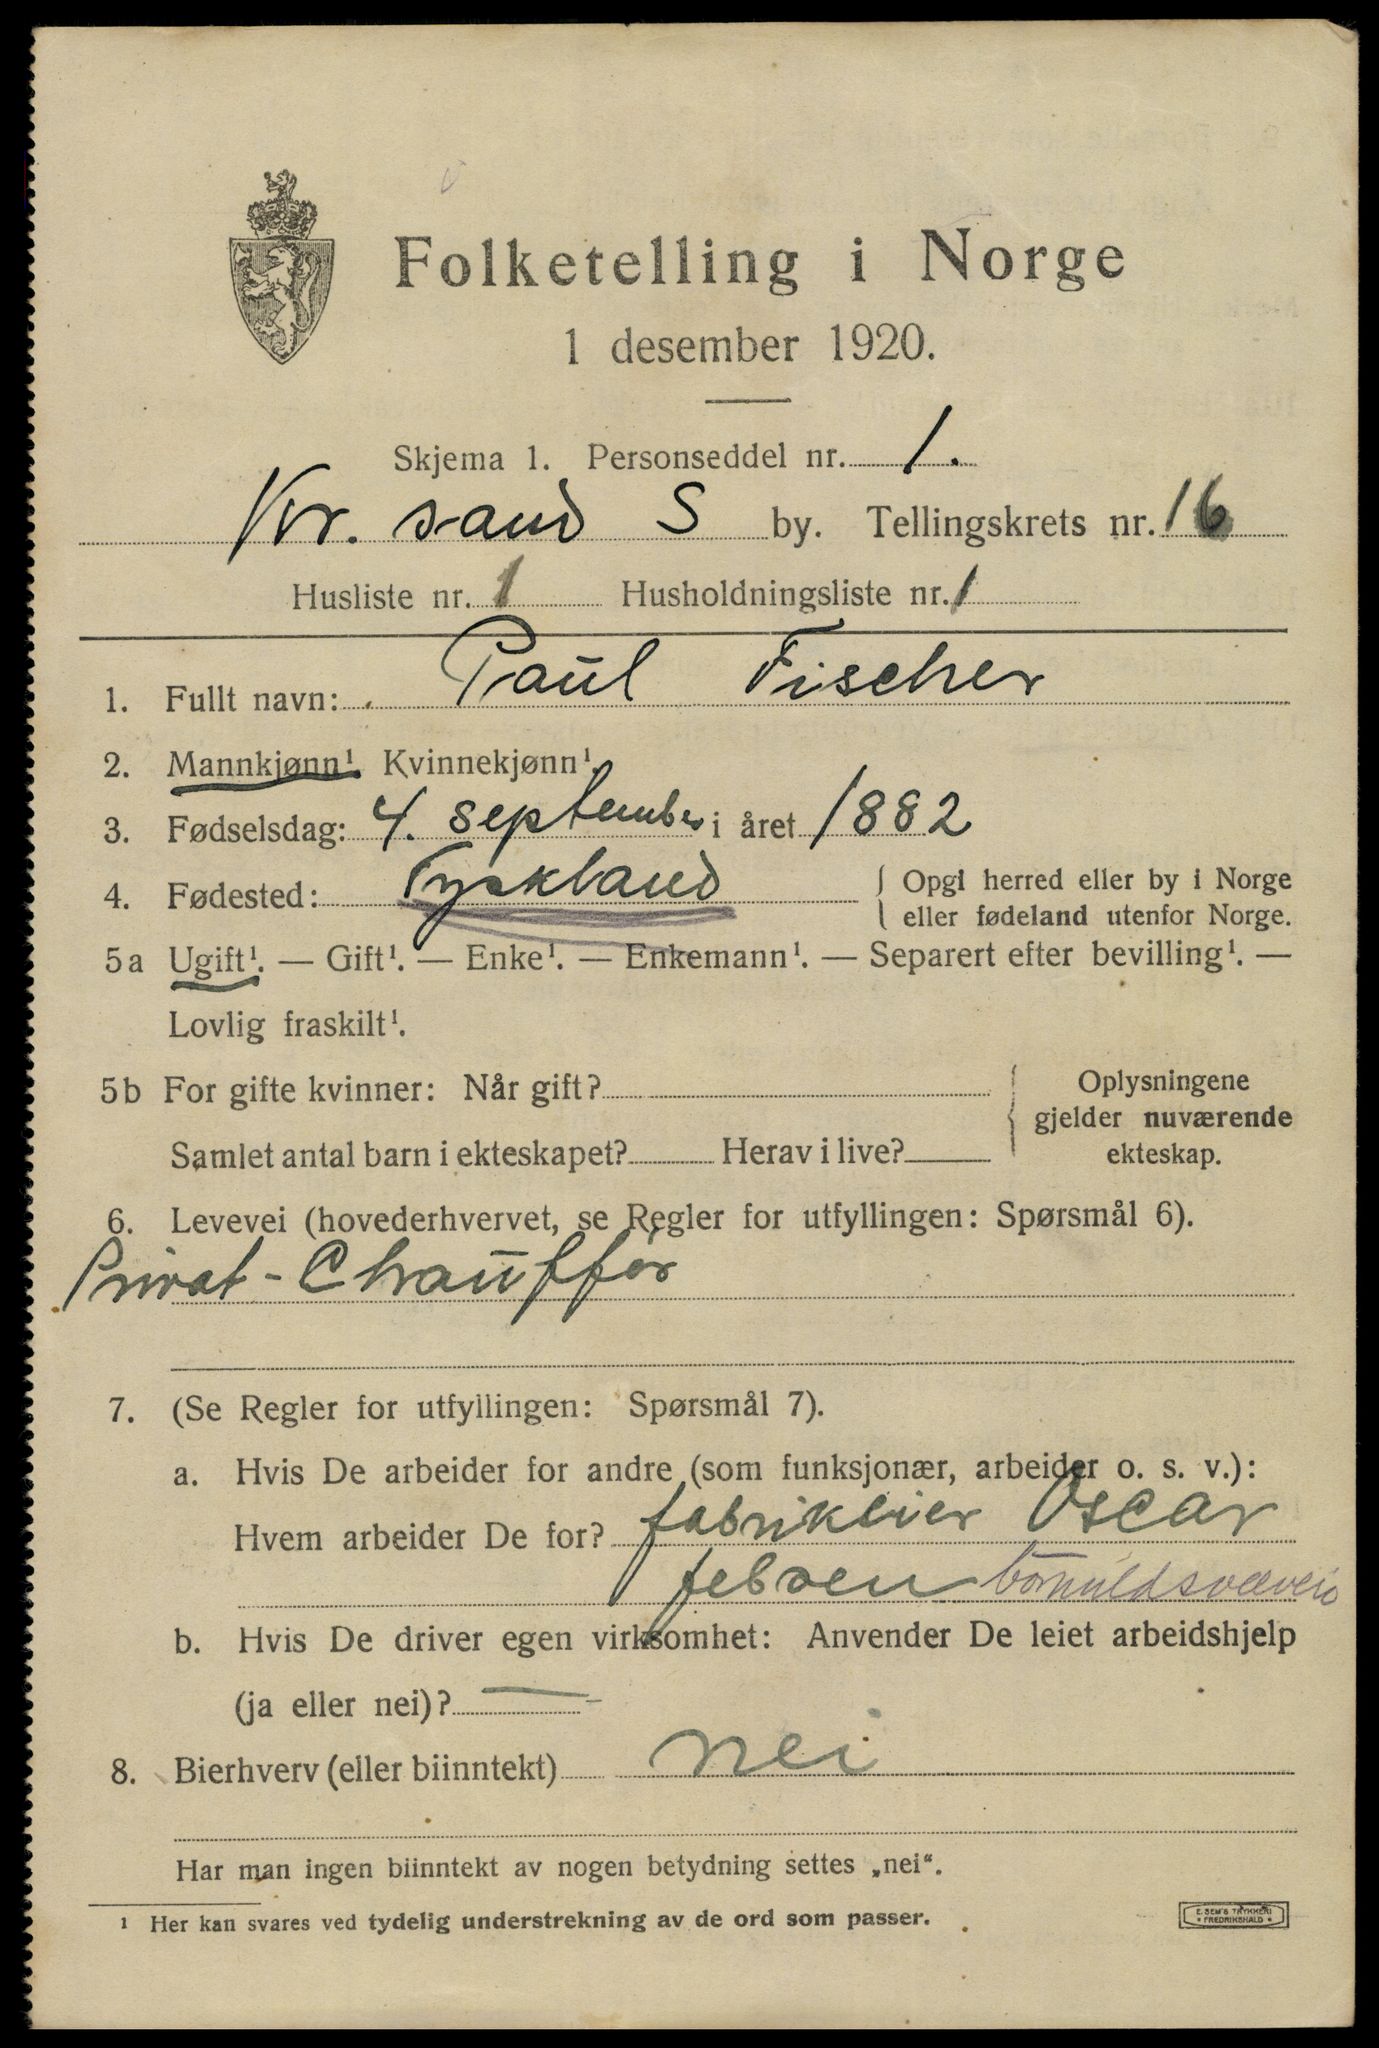 Folketelling i Norge
1 desember 1920.
Skjema 1. Personseddel nr. 1.
Kr. sand S by. Tellingskrets nr. 16
Husliste nr. 1 Husholdningsliste nr. 1
1. Fullt navn: Paul Fischer
2. Mannkjønn¹. Kvinnekjønn¹.
3. Fødselsdag: 4. september i året 1882
4. Fødested: Tyskland { Opgi herred eller by i Norge
eller fødeland utenfor Norge.
5a Ugift¹. — Gift¹. — Enke¹. — Enkemann¹. — Separert efter bevilling¹. —
Lovlig fraskilt¹.
5b For gifte kvinner: Når gift? { Oplysningene
gjelder nuværende
Samlet antal barn i ekteskapet? Herav i live? ekteskap.
6. Levevei (hovederhvervet, se Regler for utfyllingen: Spørsmål 6).
Privat-Chauffør
7. (Se Regler for utfyllingen: Spørsmål 7).
a. Hvis De arbeider for andre (som funksjonær, arbeider o. s. v.):
Hvem arbeider De for? fabrikeier Oscar
Jebsen bomuldsvæveri
b. Hvis De driver egen virksomhet: Anvender De leiet arbeidshjelp
(ja eller nei)? —
8. Bierhverv (eller biinntekt) nei
Har man ingen biinntekt av nogen betydning settes „nei“.
¹ Her kan svares ved tydelig understrekning av de ord som passer.
E. SEM'S TRYKKERI
* FREDRIKSHALD *